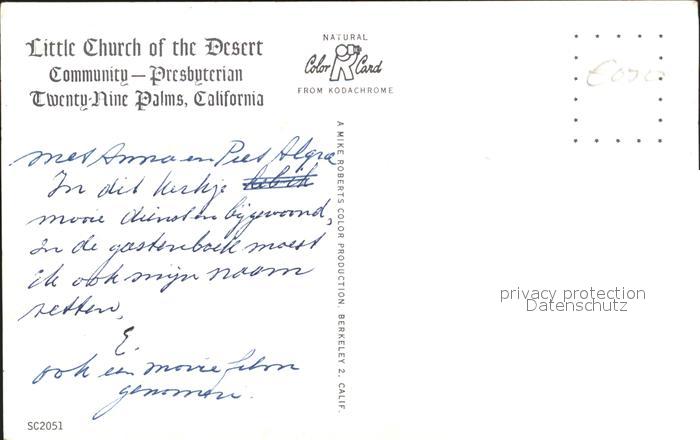 Little Church of the Desert
Community — Presbyterian
Twenty-Nine Palms, California
NATURAL
Color Card
FROM KODACHROME
met Anna en Piet Algra
In dit kerkje heb ik
mooie diensten bijgewoond,
In de gastenboek moest
ik ook mijn naam
zetten,
E.
ook een mooie film
genomen.
A MIKE ROBERTS COLOR PRODUCTION BERKELEY 2, CALIF.
privacy protection
Datenschutz
SC2051